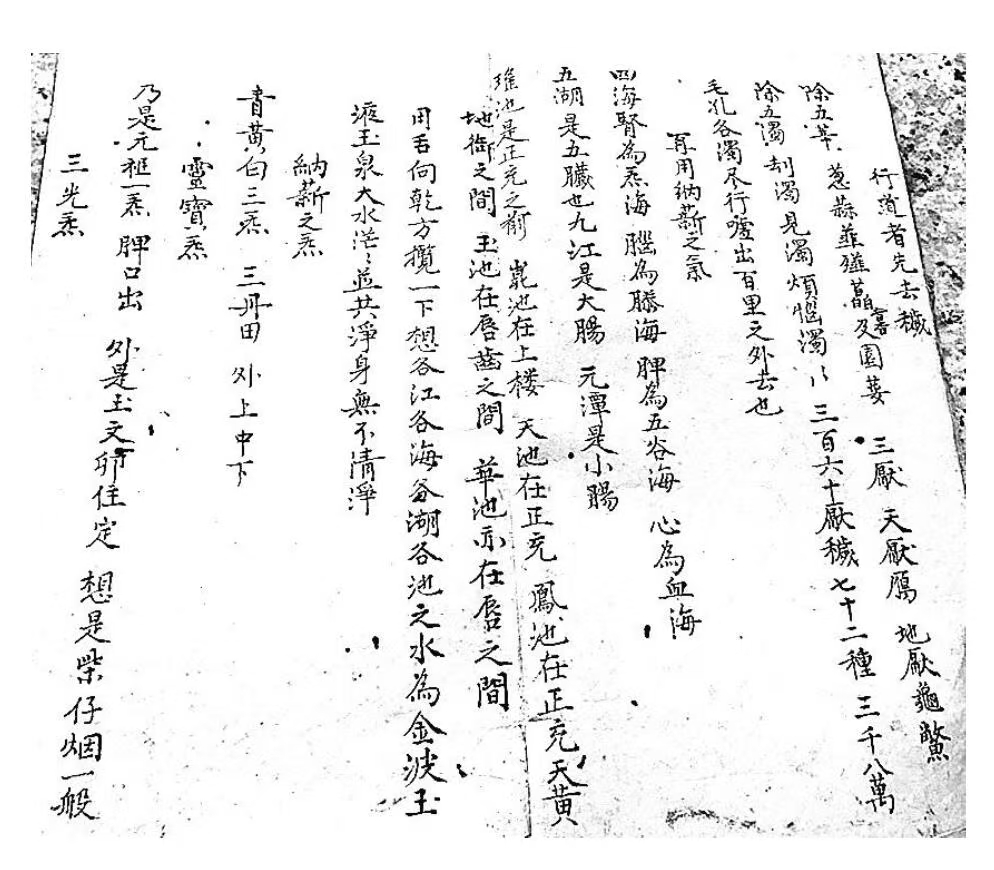 行道者先去穢 三厭 天厭鴈 地厭龜鱉
除五葷 蔥蒜韮薤 及園荽 三百六十厭穢七十二種 三千八萬
除五濁 刦濁見濁煩惱濁
毛孔各濁尽行噓出百里之外去也
再用納薪之氣
四海腎為炁海 腦為髓海 脾為五谷海 心為血海
五湖是五臟也九江是大腸 元潭是小腸
瑤池是正充之前 崑池在上楼 天池在正充 鳳池在正充天黄
地衖之間 玉池在唇齒之間 華池亦在唇之間
用舌向乾方攪一下想各江各海各湖各池之水為金波玉
液玉泉大水茫〻並共淨身無不清淨
納薪之炁
青黄白三炁 三丹田 外上中下
靈寶炁
乃是元祖一炁 脾口出 外是玉文卯住定 想是柴仔烟一般
三光炁